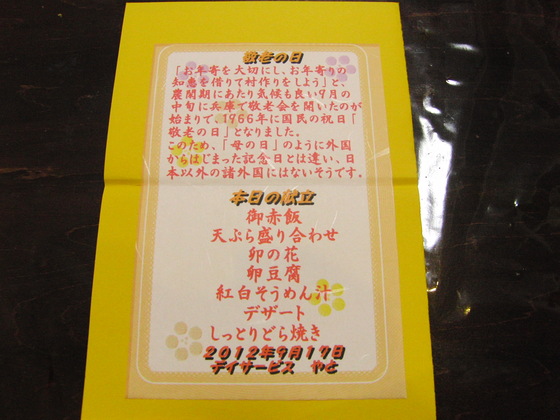 敬老の日
「お年寄を大切にし、お年寄りの
知恵を借りて村作りをしよう」と、
農閑期にあたり気候も良い9月の
中旬に兵庫で敬老会を開いたのが
始まりで、1966年に国民の祝日「
敬老の日」となりました。
このため、「母の日」のように外国
からはじまった記念日とは違い、日
本以外の諸外国にはないそうです。
本日の献立
御赤飯
天ぷら盛り合わせ
卯の花
卵豆腐
紅白そうめん汁
デザート
しっとりどら焼き
2012年9月17日
デイサービス やと